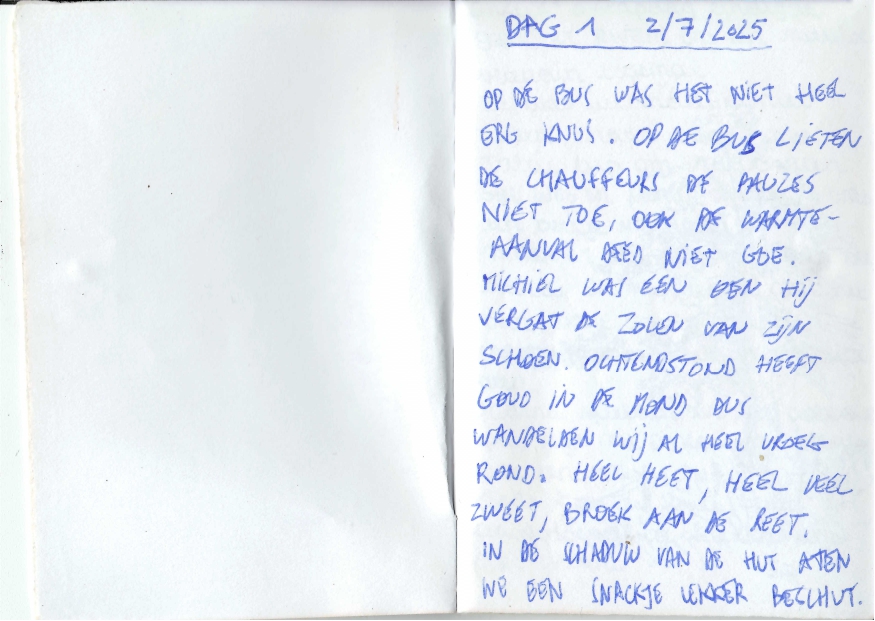 DAG 1 2/7/2025
OP DE BUS WAS HET NIET HEEL
ERG KNUS. OP DE BUS LIETEN
DE CHAUFFEURS DE PAUZES
NIET TOE, OOK DE WARMTE-
AANVAL DEED NIET GOE.
MICHIEL WAS EEN HIJ
VERGAT DE ZOLEN VAN ZIJN
SCHOEN. OCHTENDSTOND HEEFT
GOUD IN DE MOND DUS
WANDELDEN WIJ AL HEEL VROEG
ROND. HEEL HEET, HEEL VEEL
ZWEET, BROEK AAN DE REET.
IN DE SCHADUW VAN DE HUT ATEN
WE EEN SNACKJE LEKKER BESCHUT.